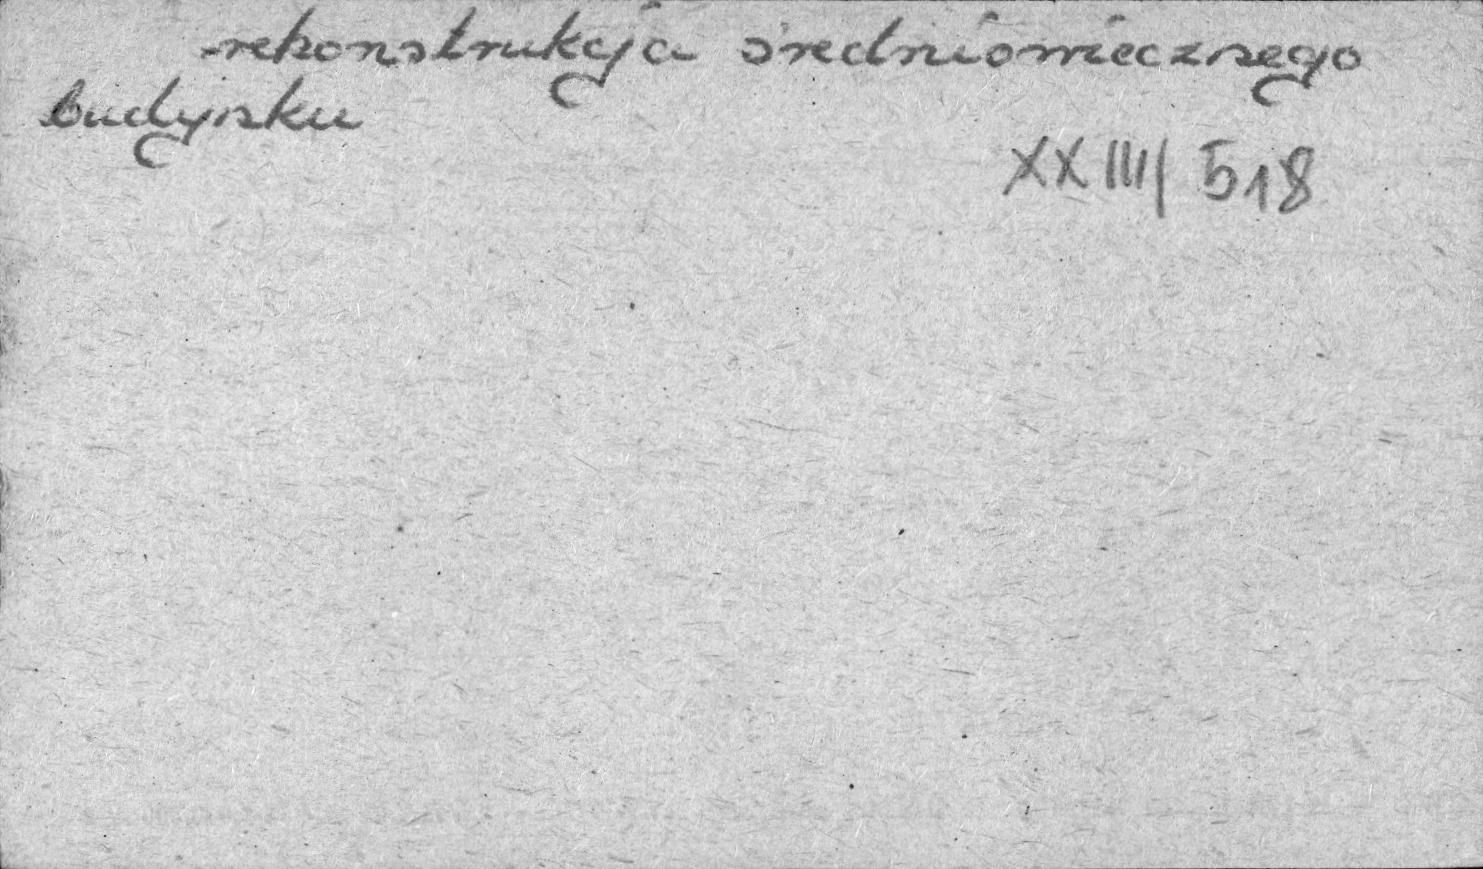 rekonstrukcja średniowiecznego
budynku
XXIIII/ 518